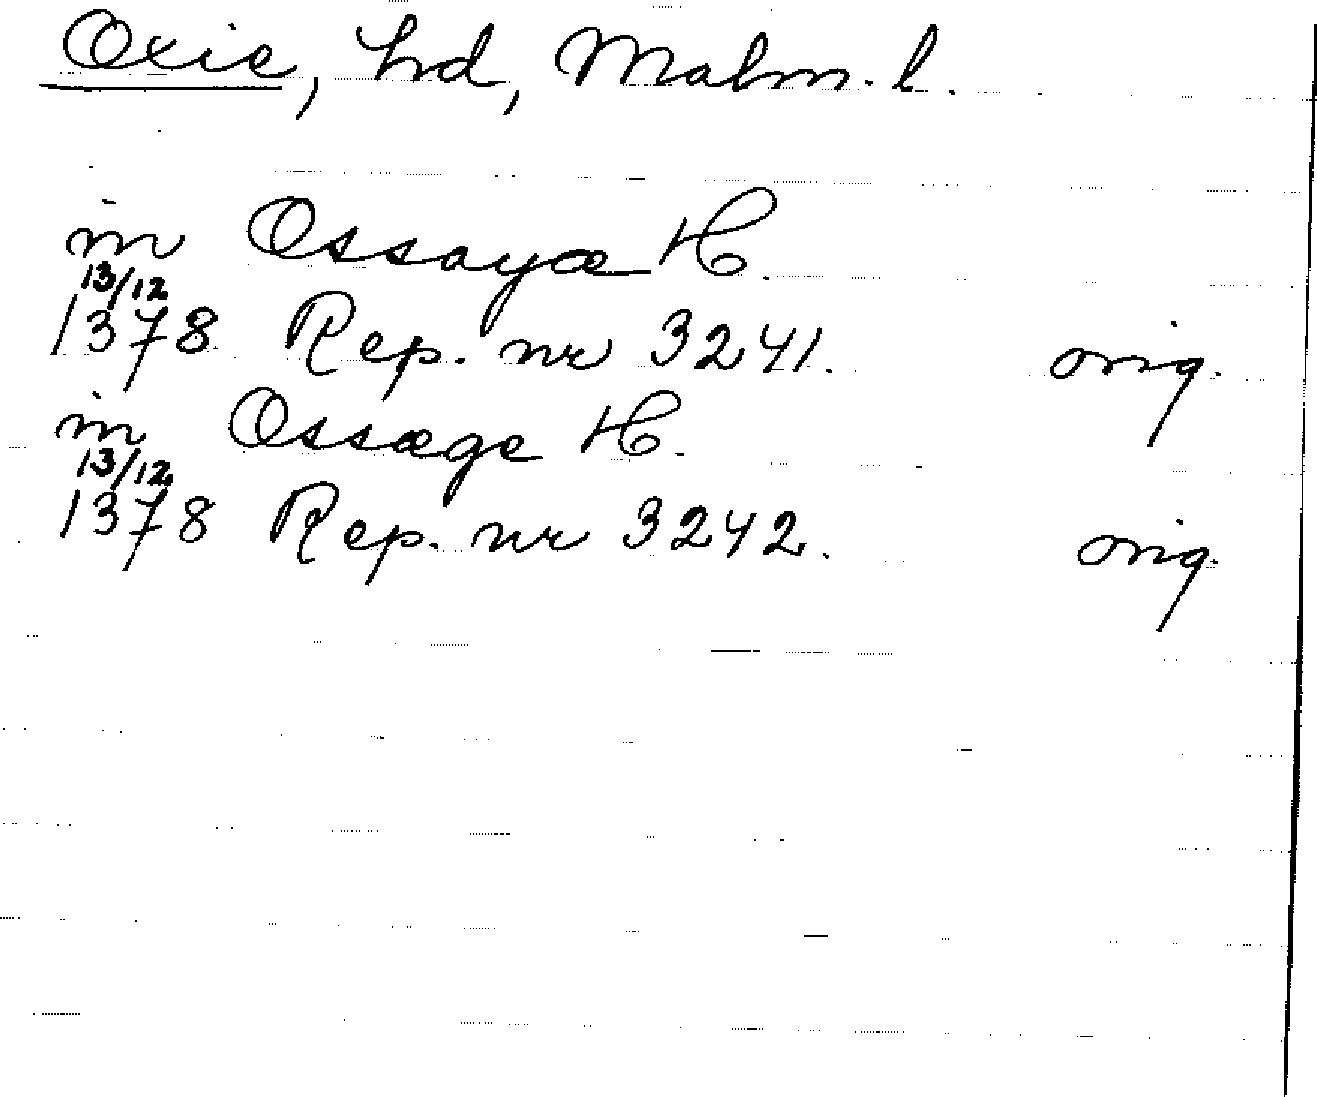 Oxie, hd, Malm. l.
in Ossayæ H.
13/12
1378 Rep. nr 3241. orig.
in Ossæge H.
13/12
1378 Rep. nr 3242. orig.